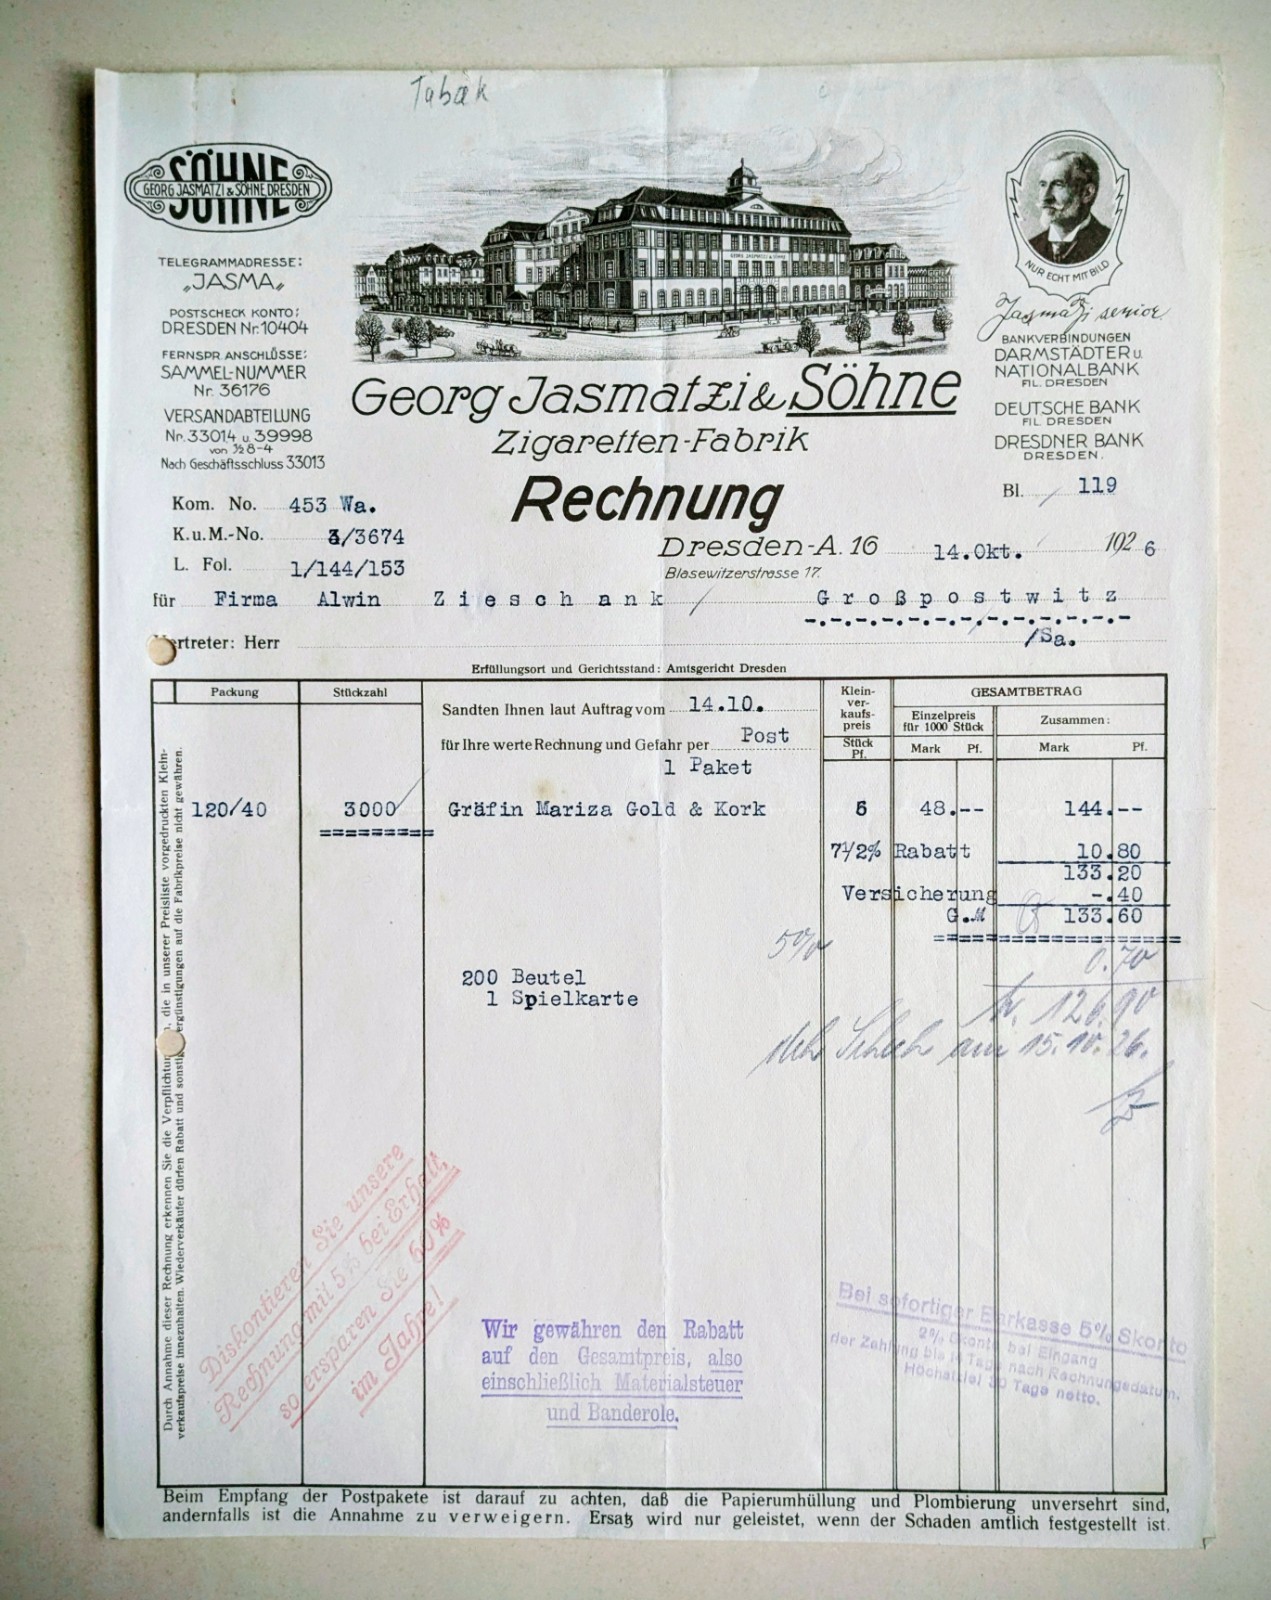 Tabak
SÖHNE
GEORG JASMATZI & SÖHNE DRESDEN
TELEGRAMMADRESSE:
„JASMA„
POSTSCHECK KONTO:
DRESDEN Nr. 10404
FERNSPR. ANSCHLÜSSE:
SAMMEL-NUMMER
Nr. 36176
VERSANDABTEILUNG
Nr. 33014 u. 39998
von ½ 8-4
Nach Geschäftsschluss 33013
GEORG JASMATZI & SÖHNE
NUR ECHT MIT BILD
Jasmatzi senior
BANKVERBINDUNGEN
DARMSTÄDTER u.
NATIONALBANK
FIL. DRESDEN
DEUTSCHE BANK
FIL. DRESDEN
DRESDNER BANK
DRESDEN.
Georg Jasmatzi & Söhne
Zigaretten-Fabrik
Rechnung
Bl. 119
Kom. No. 453 Wa.
K.u.M.-No. 3/3674
L. Fol. 1/144/153
Dresden-A. 16 14.Okt. 1926
Blasewitzerstrasse 17.
für Firma Alwin Zieschank Großpostwitz
/Sa.
ertreter: Herr
Erfüllungsort und Gerichtsstand: Amtsgericht Dresden
Packung
Stückzahl
Sandten Ihnen laut Auftrag vom 14.10.
für Ihre werte Rechnung und Gefahr per Post
1 Paket
Klein-
ver-
kaufs-
preis
Stück
Pf.
GESAMTBETRAG
Einzelpreis
für 1000 Stück
Zusammen:
Mark Pf. Mark Pf.
120/40 3000 Gräfin Mariza Gold & Kork 6 48.-- 144.--
7½% Rabatt 10.80
133.20
Versicherung -.40
G.M 133.60
5%
200 Beutel
1 Spielkarte
126.90
Scheck am 15.10.26.
Durch Annahme dieser Rechnung erkennen Sie die Verpflichtun , die in unserer Preisliste vorgedruckten Klein-
verkaufspreise innezuhalten. Wiederverkäufer dürfen Rabatt und sonstig ergünstigungen auf die Fabrikpreise nicht gewähren.
Diskontieren Sie unsere
Rechnung mit 5% bei Erhalt,
so ersparen Sie 60%
im Jahre!
Wir gewähren den Rabatt
auf den Gesamtpreis, also
einschließlich Materialsteuer
und Banderole.
Bei sofortiger Barkasse 5% Skonto
2% Skonto bei Eingang
der Zahlung bis 14 Tage nach Rechnungsdatum.
Höchstziel 30 Tage netto.
Beim Empfang der Postpakete ist darauf zu achten, daß die Papierumhüllung und Plombierung unversehrt sind,
andernfalls ist die Annahme zu verweigern. Ersatz wird nur geleistet, wenn der Schaden amtlich festgestellt ist.